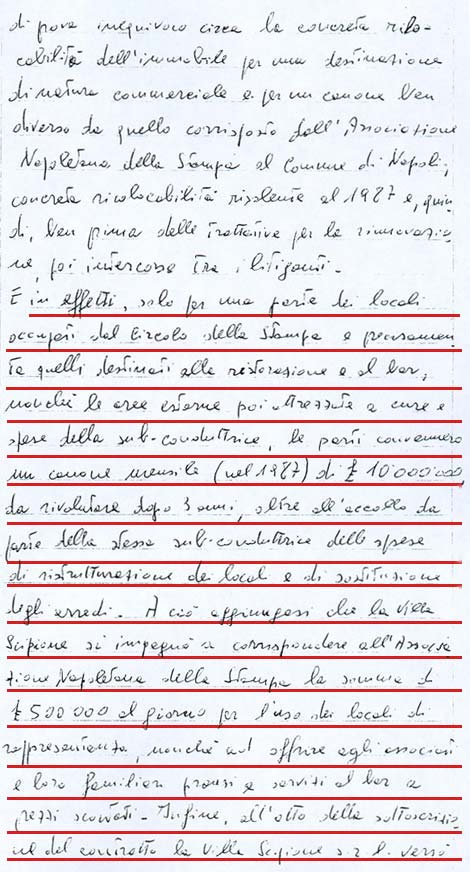 di prova inequivoco circa la concreta rilo-
cabilità dell'immobile per una destinazione
di natura commerciale e per un canone ben
diverso da quello corrisposto dall'Associazione
Napoletana della Stampa al Comune di Napoli;
concreta rilocabilità risalente al 1987 e, quin
di, ben prima delle trattative per la rinnovazio-
ne, poi intercorse tra i litiganti.
E in effetti, solo per una parte dei locali
occupati dal Circolo della Stampa e precisamen
te quelli destinati alla ristorazione e al bar,
nonché le aree esterne poi attrezzate a cura e
spese della sub-conduttrice, le parti convennero
un canone mensile (nel 1987) di £ 10.000.000,
da rivalutare dopo 3 anni, oltre all'accollo da
parte della stessa sub-conduttrice delle spese
di ristrutturazione dei locali e di sostituzione
degli arredi. A ciò aggiungasi che la Villa
Scipione si impegnò a corrispondere all'Associa
zione Napoletana della Stampa la somma di
£ 500 000 al giorno per l'uso dei locali di
rappresentanza, nonché ad offrire agli associati
e loro familiari pranzi e servizi al bar a
prezzi scontati. Infine, all'atto della sottoscrizio
ne del contratto la Villa Scipione s.r.l. versò